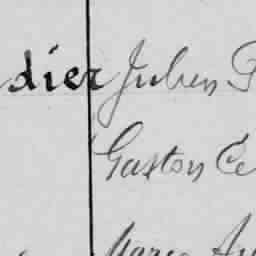 dier Julien
Gaston Ce
Marce